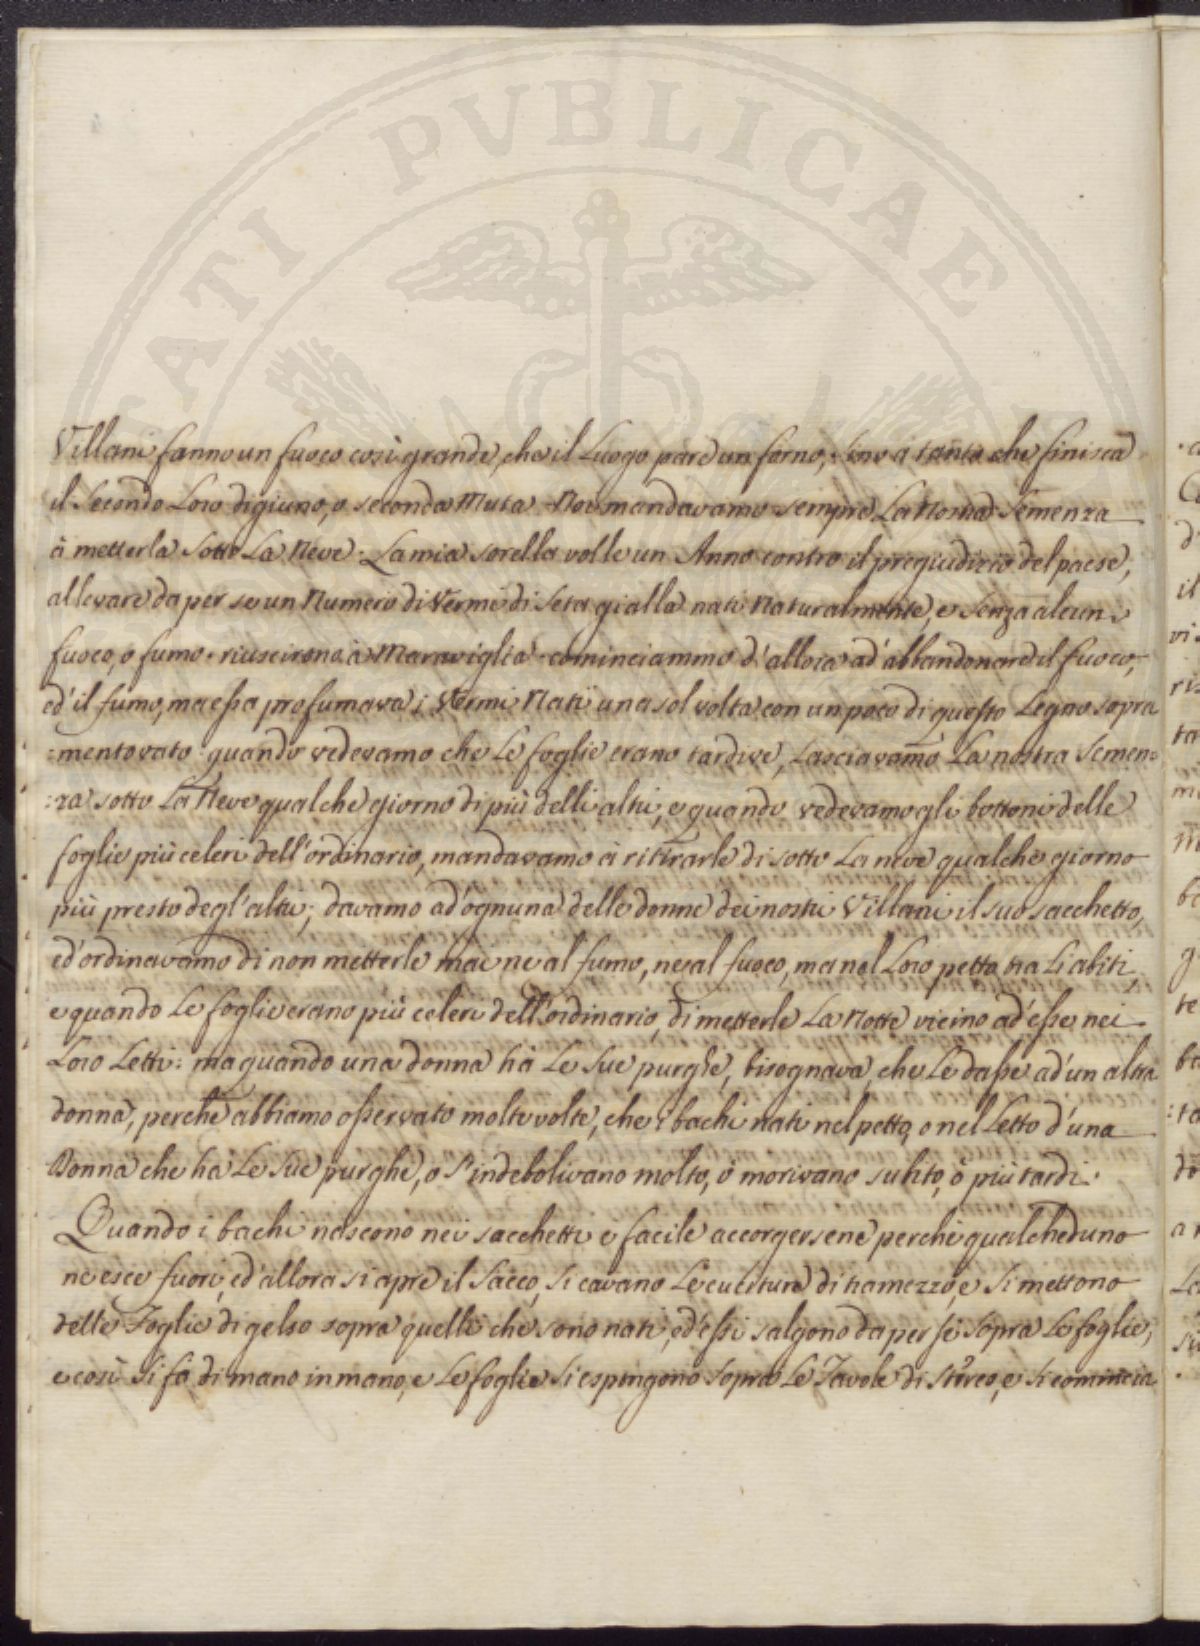 PVBLICAE
Villani fanno un fuoco così grande, che il Luogo pare un forno, sino à tanto che finisca
il Secondo Loro digiuno, o seconda Muta. Noi mandavamo sempre La Nostra Semenza
à metterla sotto La Neve. La mia sorella volle un Anno contro il pregiudizio del paese,
allevare da per se un Numero di Vermi di Seta gialla nati Naturalmente, e senza alcun
fuoco, o fumo. riuscirono à Maraviglia. cominciammo d'allora ad'abbandonare il fuoco,
ed'il fumo, ma essa profumava i Vermi Nati una sol volta con un poco di questo Legno sopra
:mentovato. quando vedevamo che Le foglie erano tardive, Lasciavamo La nostra Semen=
:za sotto La Neve qualche giorno di più delli altri, e quando vedevamo gli bottoni delle
foglie più celeri dell'ordinario, mandavamo à ritirarle di sotto La neve qualche giorno
più presto degl'altri; davamo ad'ognuna delle donne dei nostri Villani il suo sacchetto,
ed'ordinavamo di non metterle mai ne al fumo, ne al fuoco, ma nel Loro petto tra Li abiti,
e quando Le foglie erano più celeri dell'ordinario, di metterle La Notte vicino ad'esse nei
Loro Letti: ma quando una donna hà Le Sue purghe, bisognava, che Le dasse ad'un altra
donna, perchè abbiamo osservato molte volte, che i bachi nati nel petto, o nel Letto d'una
Donna che hà Le Sue purghe, o s'indebolivano molto, ò morivano subito, ò più tardi.
Quando i bachi nascono nei sacchetti è facile accorgersene perchè qualcheduno
ne esce fuori, ed'allora si apre il Sacco, si cavano Le cuciture di tramezzo, e si mettono
delle Foglie di gelso sopra quelli che sono nati, ed'essi salgono da per sé sopra Le foglie,
e così si fà di mano in mano, e Le foglie si espongono sopra Le Tavole di sterco, e si comincia